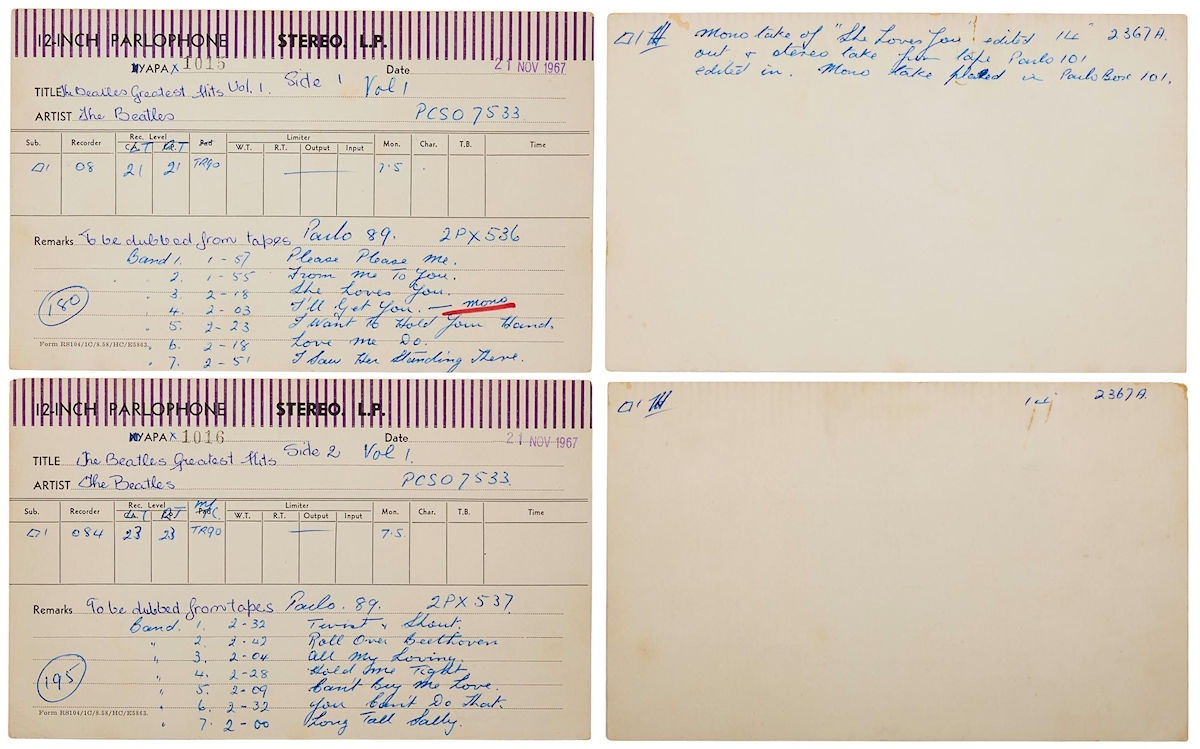 12-INCH PARLOPHONE STEREO. L.P.
YAPAX 1015 Date 21 NOV 1967
TITLE The Beatles Greatest Hits Vol. 1. Side 1 Vol 1
ARTIST The Beatles PCSO 7533
Sub. Recorder Rec. Level Pad Limiter Mon. Char. T.B. Time
LT RT W.T. R.T. Output Input
□1 08 21 21 TR90 7.5
Remarks To be dubbed from tapes Parlo 89. 2PX 536
Band 1. 1-57 Please Please Me.
2. 1-55 From Me To You.
3. 2-18 She Loves You.
180 4. 2-03 I'll Get You. - mono
5. 2-23 I Want To Hold Your Hand.
Form RS104/1C/8.58/HC/E5863. 6. 2-18 Love Me Do.
7. 2-51 I Saw Her Standing There.
□1 Mono take of "She Loves You" edited 14 2367A.
out & stereo take from tape Parlo 101
edited in. Mono take placed in Parlo Box 101.
12-INCH PARLOPHONE STEREO. L.P.
YAPAX 1016 Date 21 NOV 1967
TITLE The Beatles Greatest Hits Side 2 Vol 1.
ARTIST The Beatles PCSO 7533.
Sub. Recorder Rec. Level Limiter Mon. Char. T.B. Time
LT RT W.T. R.T. Output Input
□1 084 23 23 TR90 7.5.
Remarks To be dubbed from tapes Parlo. 89. 2PX 537
Band. 1. 2-32 Twist & Shout.
" 2. 2-42 Roll Over Beethoven
" 3. 2-04 All My Loving.
195 " 4. 2-28 Hold Me Tight
" 5. 2-09 Can't Buy Me Love.
Form RS104/1C/8.58/HC/E5863. " 6. 2-32 You Can't Do That.
" 7. 2-00 Long Tall Sally.
□1 14 2367A.